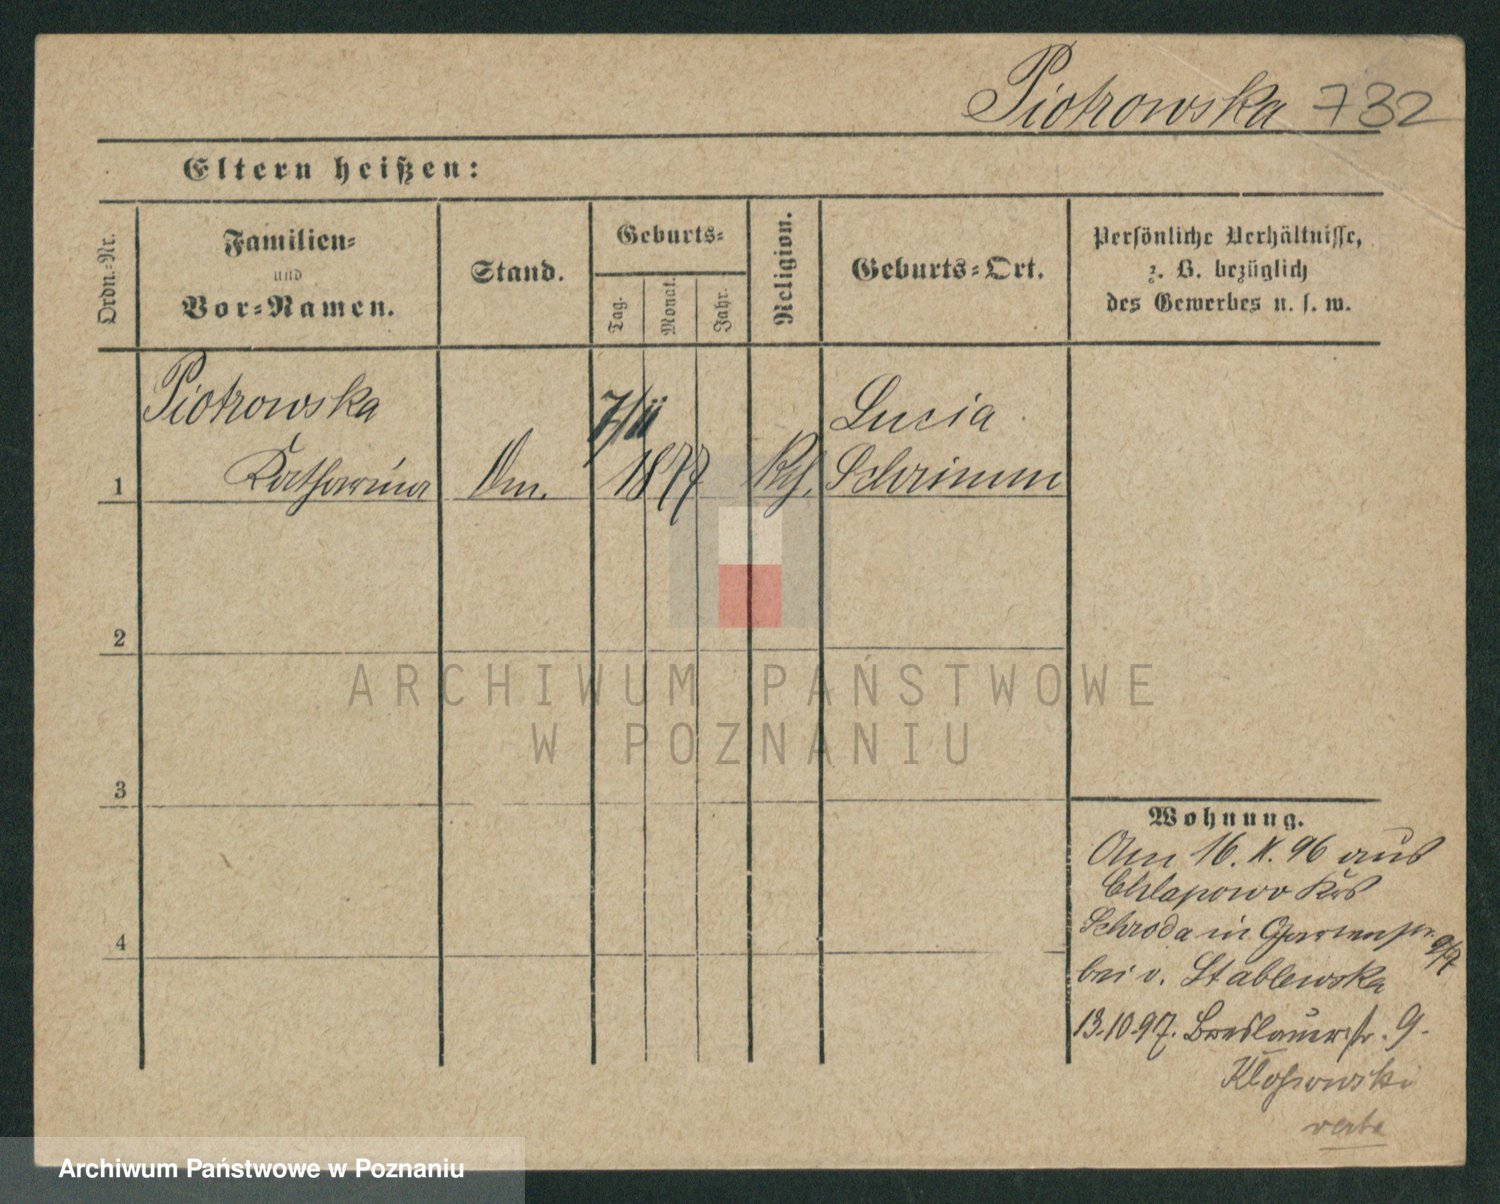 Piotrowska 732
Eltern heißen:
Ordn.-Nr.
Familien-
und
Vor-Namen.
Stand.
Geburts-
Tag.
Monat.
Jahr.
Religion.
Geburts-Ort.
Persönliche Verhältnisse,
z. B. bezüglich
des Gewerbes u. s. w.
Piotrowska 7/II Lucia
1 Katharina 1877 Schrimm
2
3
4
Wohnung.
Am 16. X. 96 aus
Chlapowo Krs
Schroda in Gartenstr. 9/7
bei v. Stablewska
13.10.97. Breslauerstr. 9.
Klossowski
ARCHIWUM PAŃSTWOWE
W POZNANIU
Archiwum Państwowe w Poznaniu